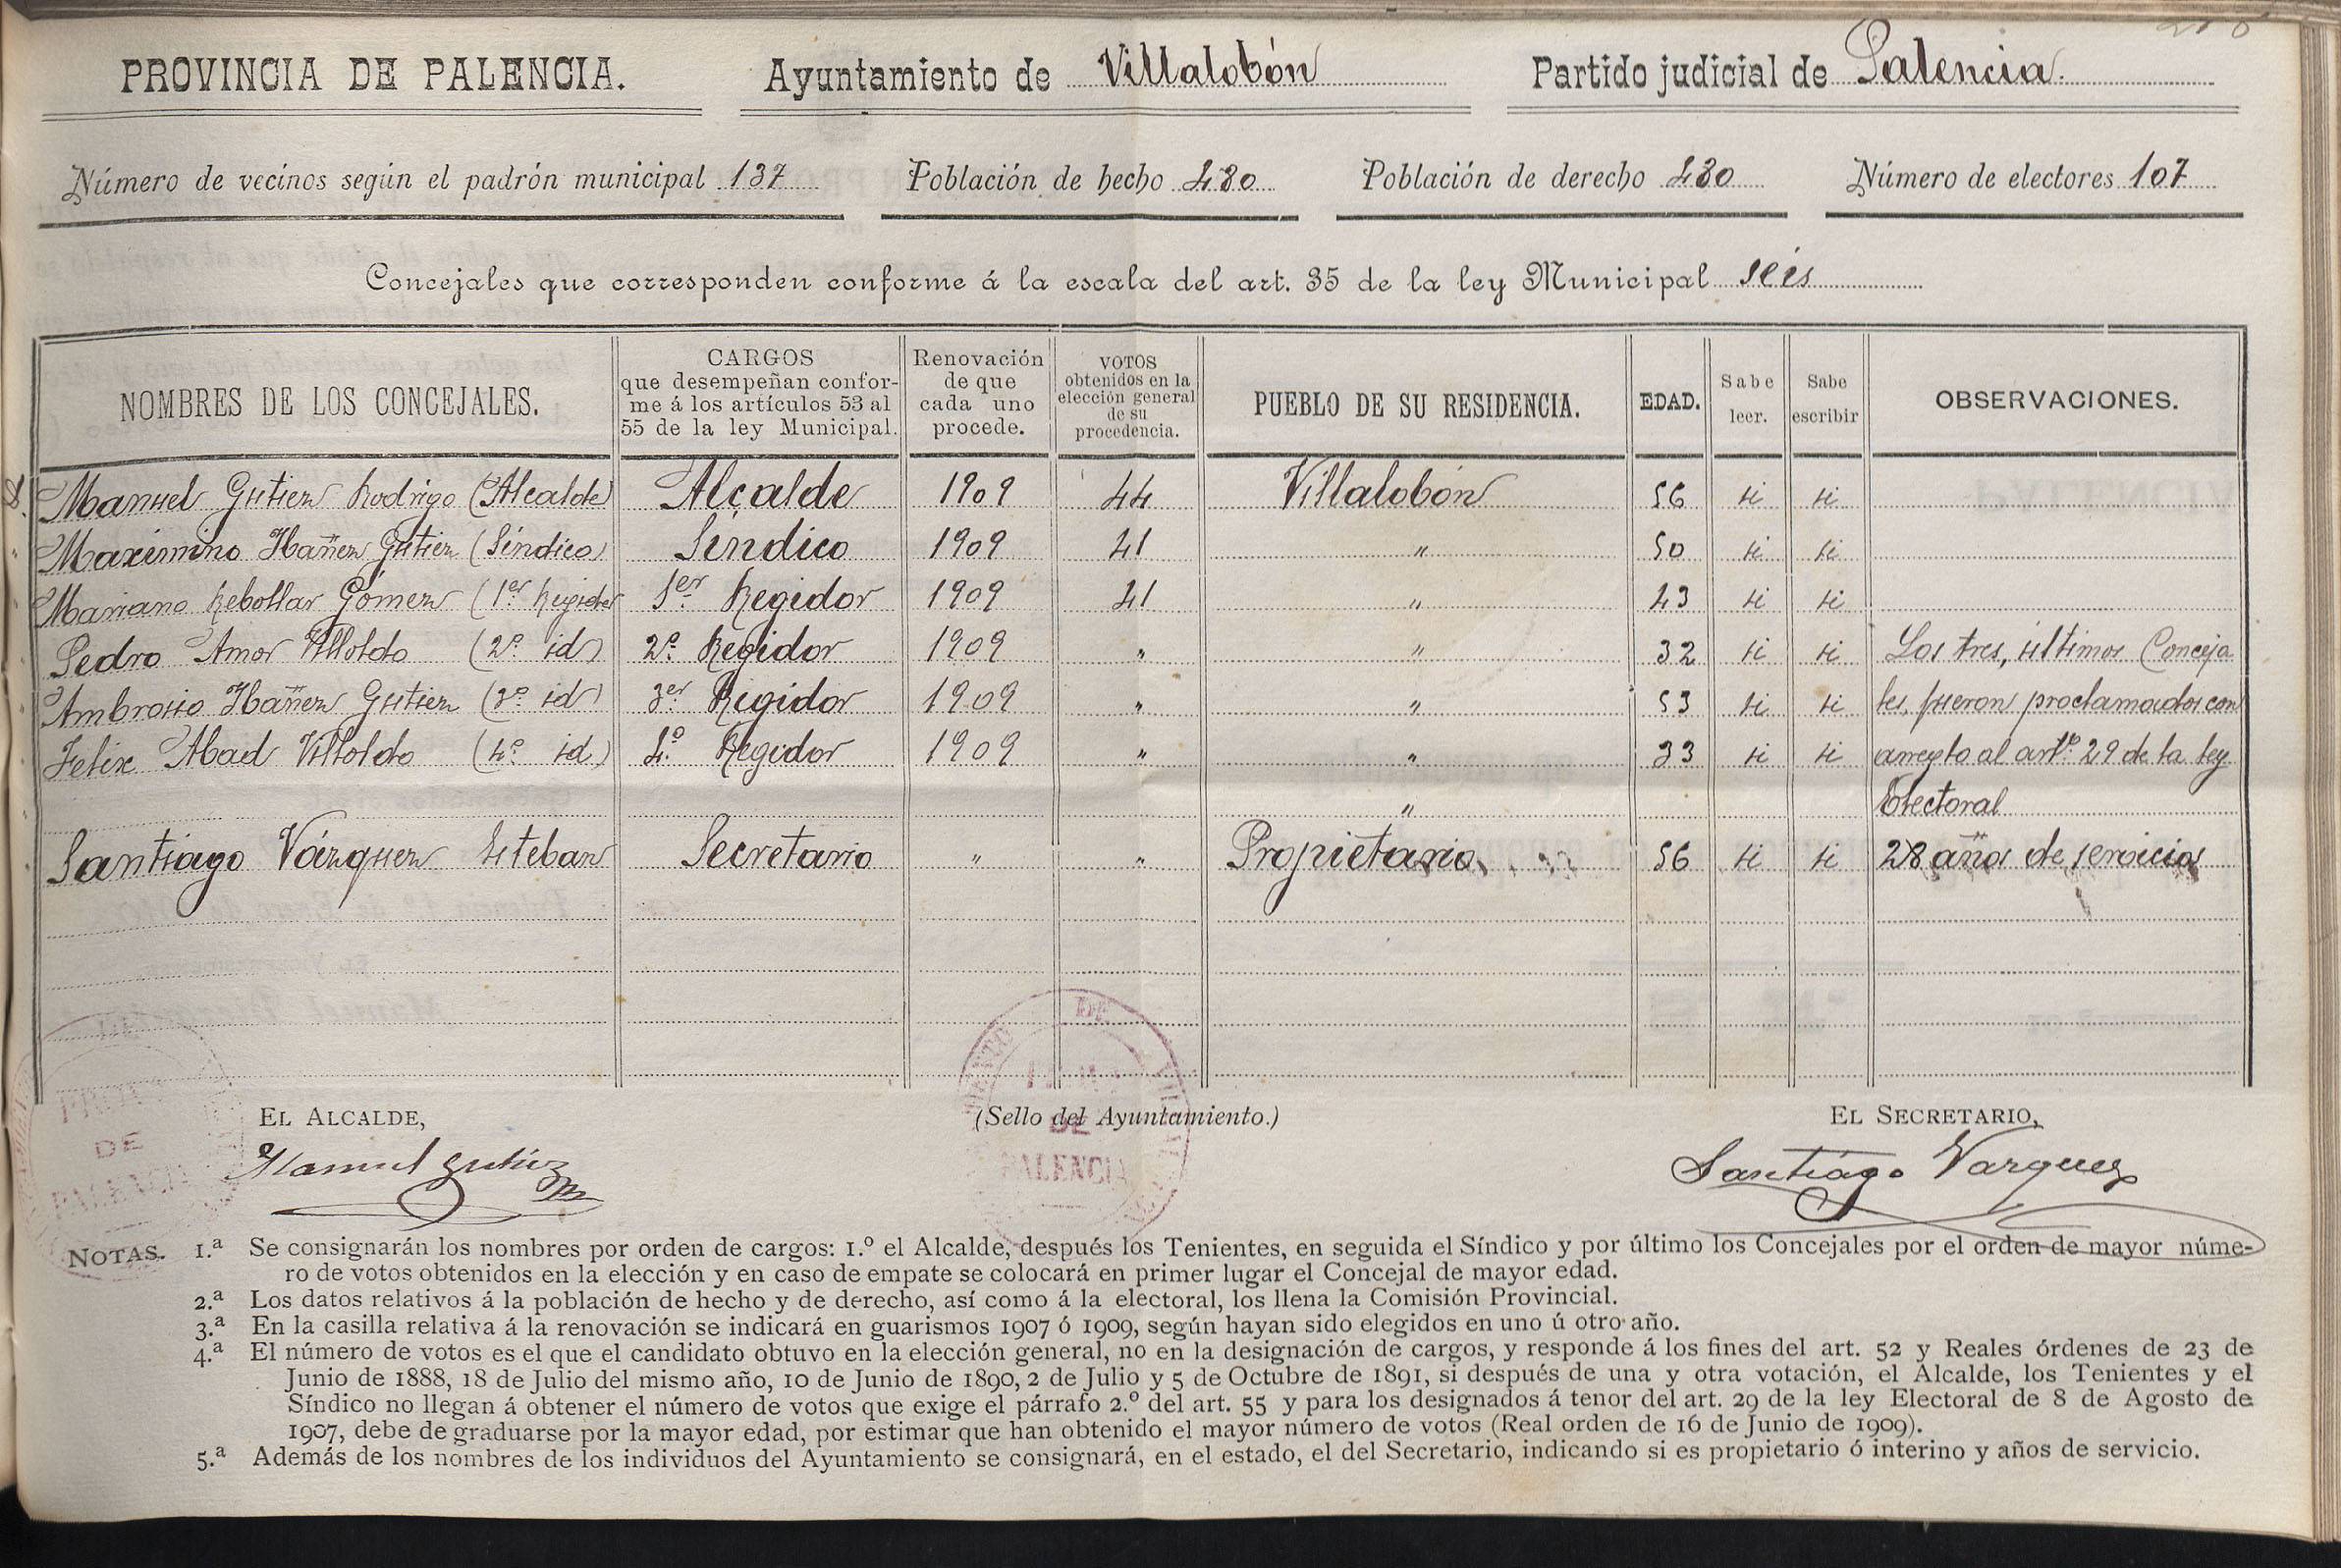 PROVINCIA DE PALENCIA. Ayuntamiento de Villalobón Partido judicial de Palencia.
Número de vecinos según el padrón municipal 137 Población de hecho 480 Población de derecho 480 Número de electores 107
Concejales que corresponden conforme á la escala del art. 35 de la ley Municipal seis
NOMBRES DE LOS CONCEJALES. CARGOS que desempeñan conforme á los artículos 53 al 55 de la ley Municipal. Renovación de que cada uno procede. VOTOS obtenidos en la elección general de su procedencia. PUEBLO DE SU RESIDENCIA. EDAD. Sabe leer. Sabe escribir OBSERVACIONES.
Manuel Gutiez Rodrigo (Alcalde) Alcalde 1909 44 Villalobón 56 si si
Maximino Ibañez Gutiez (Sindico) Sindico 1909 41 " 50 si si
Mariano Rebollar Gómez (1er Regidor 1er Regidor 1909 41 " 43 si si
Pedro Amor Villoldo (2º id) 2º Regidor 1909 " " 32 si si Los tres, ultimos Conceja
Ambrosio Ibañez Gutiez (3º id) 3er Regidor 1909 " " 53 si si les, fueron proclamados con
Felix Abad Villoldo (4º id) 4º Regidor 1909 " " 33 si si arreglo al artº 29 de la ley
" Electoral
Santiago Vázquez Esteban Secretario " " Propietario 56 si si 28 años de servicios
EL ALCALDE, (Sello del Ayuntamiento.) EL SECRETARIO,
Manuel Gutiez Santiago Vazquez
DE PALENCIA
PALENCIA
NOTAS. 1.ª Se consignarán los nombres por orden de cargos: 1.º el Alcalde, después los Tenientes, en seguida el Síndico y por último los Concejales por el orden de mayor núme-
ro de votos obtenidos en la elección y en caso de empate se colocará en primer lugar el Concejal de mayor edad.
2.ª Los datos relativos á la población de hecho y de derecho, así como á la electoral, los llena la Comisión Provincial.
3.ª En la casilla relativa á la renovación se indicará en guarismos 1907 ó 1909, según hayan sido elegidos en uno ú otro año.
4.ª El número de votos es el que el candidato obtuvo en la elección general, no en la designación de cargos, y responde á los fines del art. 52 y Reales órdenes de 23 de
Junio de 1888, 18 de Julio del mismo año, 10 de Junio de 1890, 2 de Julio y 5 de Octubre de 1891, si después de una y otra votación, el Alcalde, los Tenientes y el
Síndico no llegan á obtener el número de votos que exige el párrafo 2.º del art. 55 y para los designados á tenor del art. 29 de la ley Electoral de 8 de Agosto de
1907, debe de graduarse por la mayor edad, por estimar que han obtenido el mayor número de votos (Real orden de 16 de Junio de 1909).
5.ª Además de los nombres de los individuos del Ayuntamiento se consignará, en el estado, el del Secretario, indicando si es propietario ó interino y años de servicio.